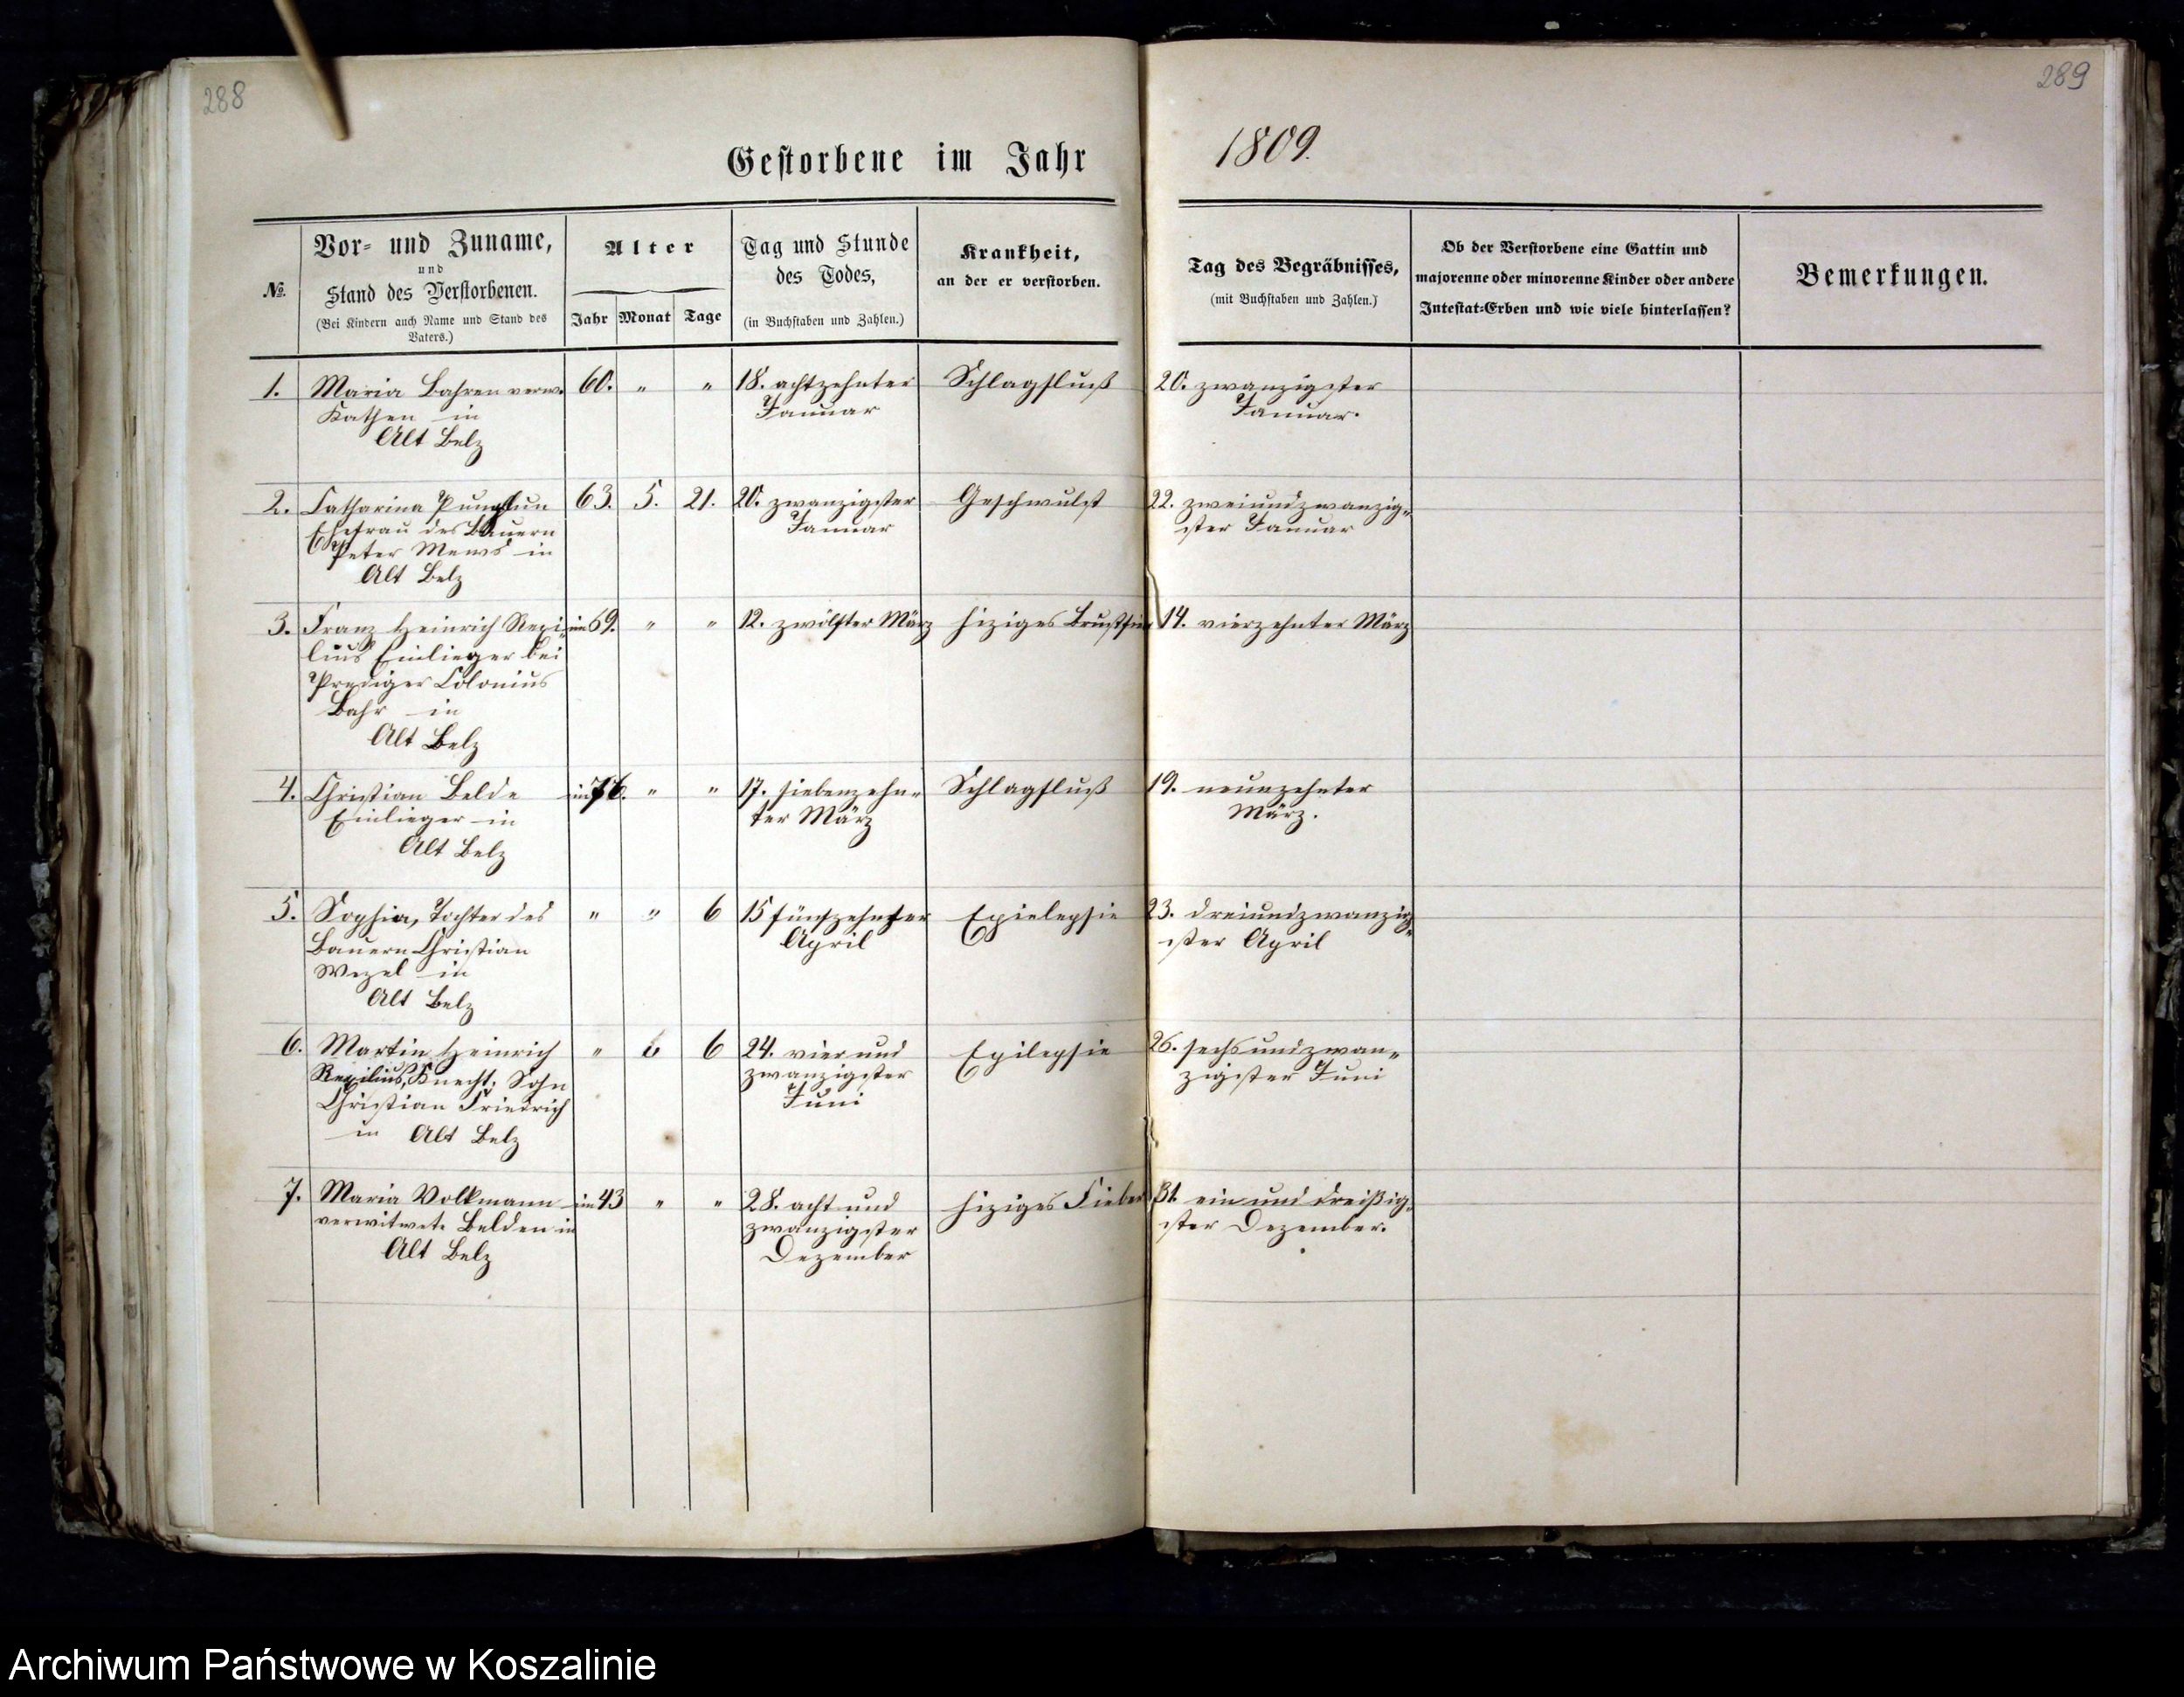 288
289
Gestorbene im Jahr 1809.
№.
Vor- und Zuname,
und
Stand des Verstorbenen.
(Bei Kindern auch Name und Stand des
Vaters.)
Alter
Jahr Monat Tage
Tag und Stunde
des Todes,
(in Buchstaben und Zahlen.)
Krankheit,
an der er verstorben.
Tag des Begräbnisses,
(mit Buchstaben und Zahlen.)
Ob der Verstorbene eine Gattin und
majorenne oder minorenne Kinder oder andere
Intestat-Erben und wie viele hinterlassen?
Bemerkungen.
1. Maria Bahren verw. 60. " " 18. achtzehnter Schlagfluß 20. zwanzigster
Kathen in Januar Januar.
Alt Belz
2. Catharina 63. 5. 21. 20. zwanzigster Geschwulst 22. zweiundzwanzig-
Ehefrau des Bauern Januar ster Januar
Peter Mews in
Alt Belz
3. Franz Heinrich Rexi- im 69. " " 12. zwölfter März hiziges 14. vierzehnter März
lius Einlieger bei
Prediger Colonius
Bahr in
Alt Belz
4. Christian Belde im 76. " " 17. siebenzehn- Schlagfluß 19. neunzehnter
Einlieger in ter März März.
Alt Belz
5. Sophia, Tochter des " " 6 15 fünfzehnter Epielepsie 23. dreiundzwanzig-
Bauern Christian April ster April
Wezel in
Alt Belz
6. Martin Heinrich " 6 6 24. vier und Epilepsie 26. sechsundzwan-
Rexilius, Knecht, Sohn zwanzigster zigster Juni
Christian Friedrich Juni
in Alt Belz
7. Maria Volkmann im 43 " " 28. acht und hiziges Fieber 31. ein und dreißig-
verwitwete Belden in zwanzigster ster Dezember.
Alt Belz Dezember
Archiwum Państwowe w Koszalinie